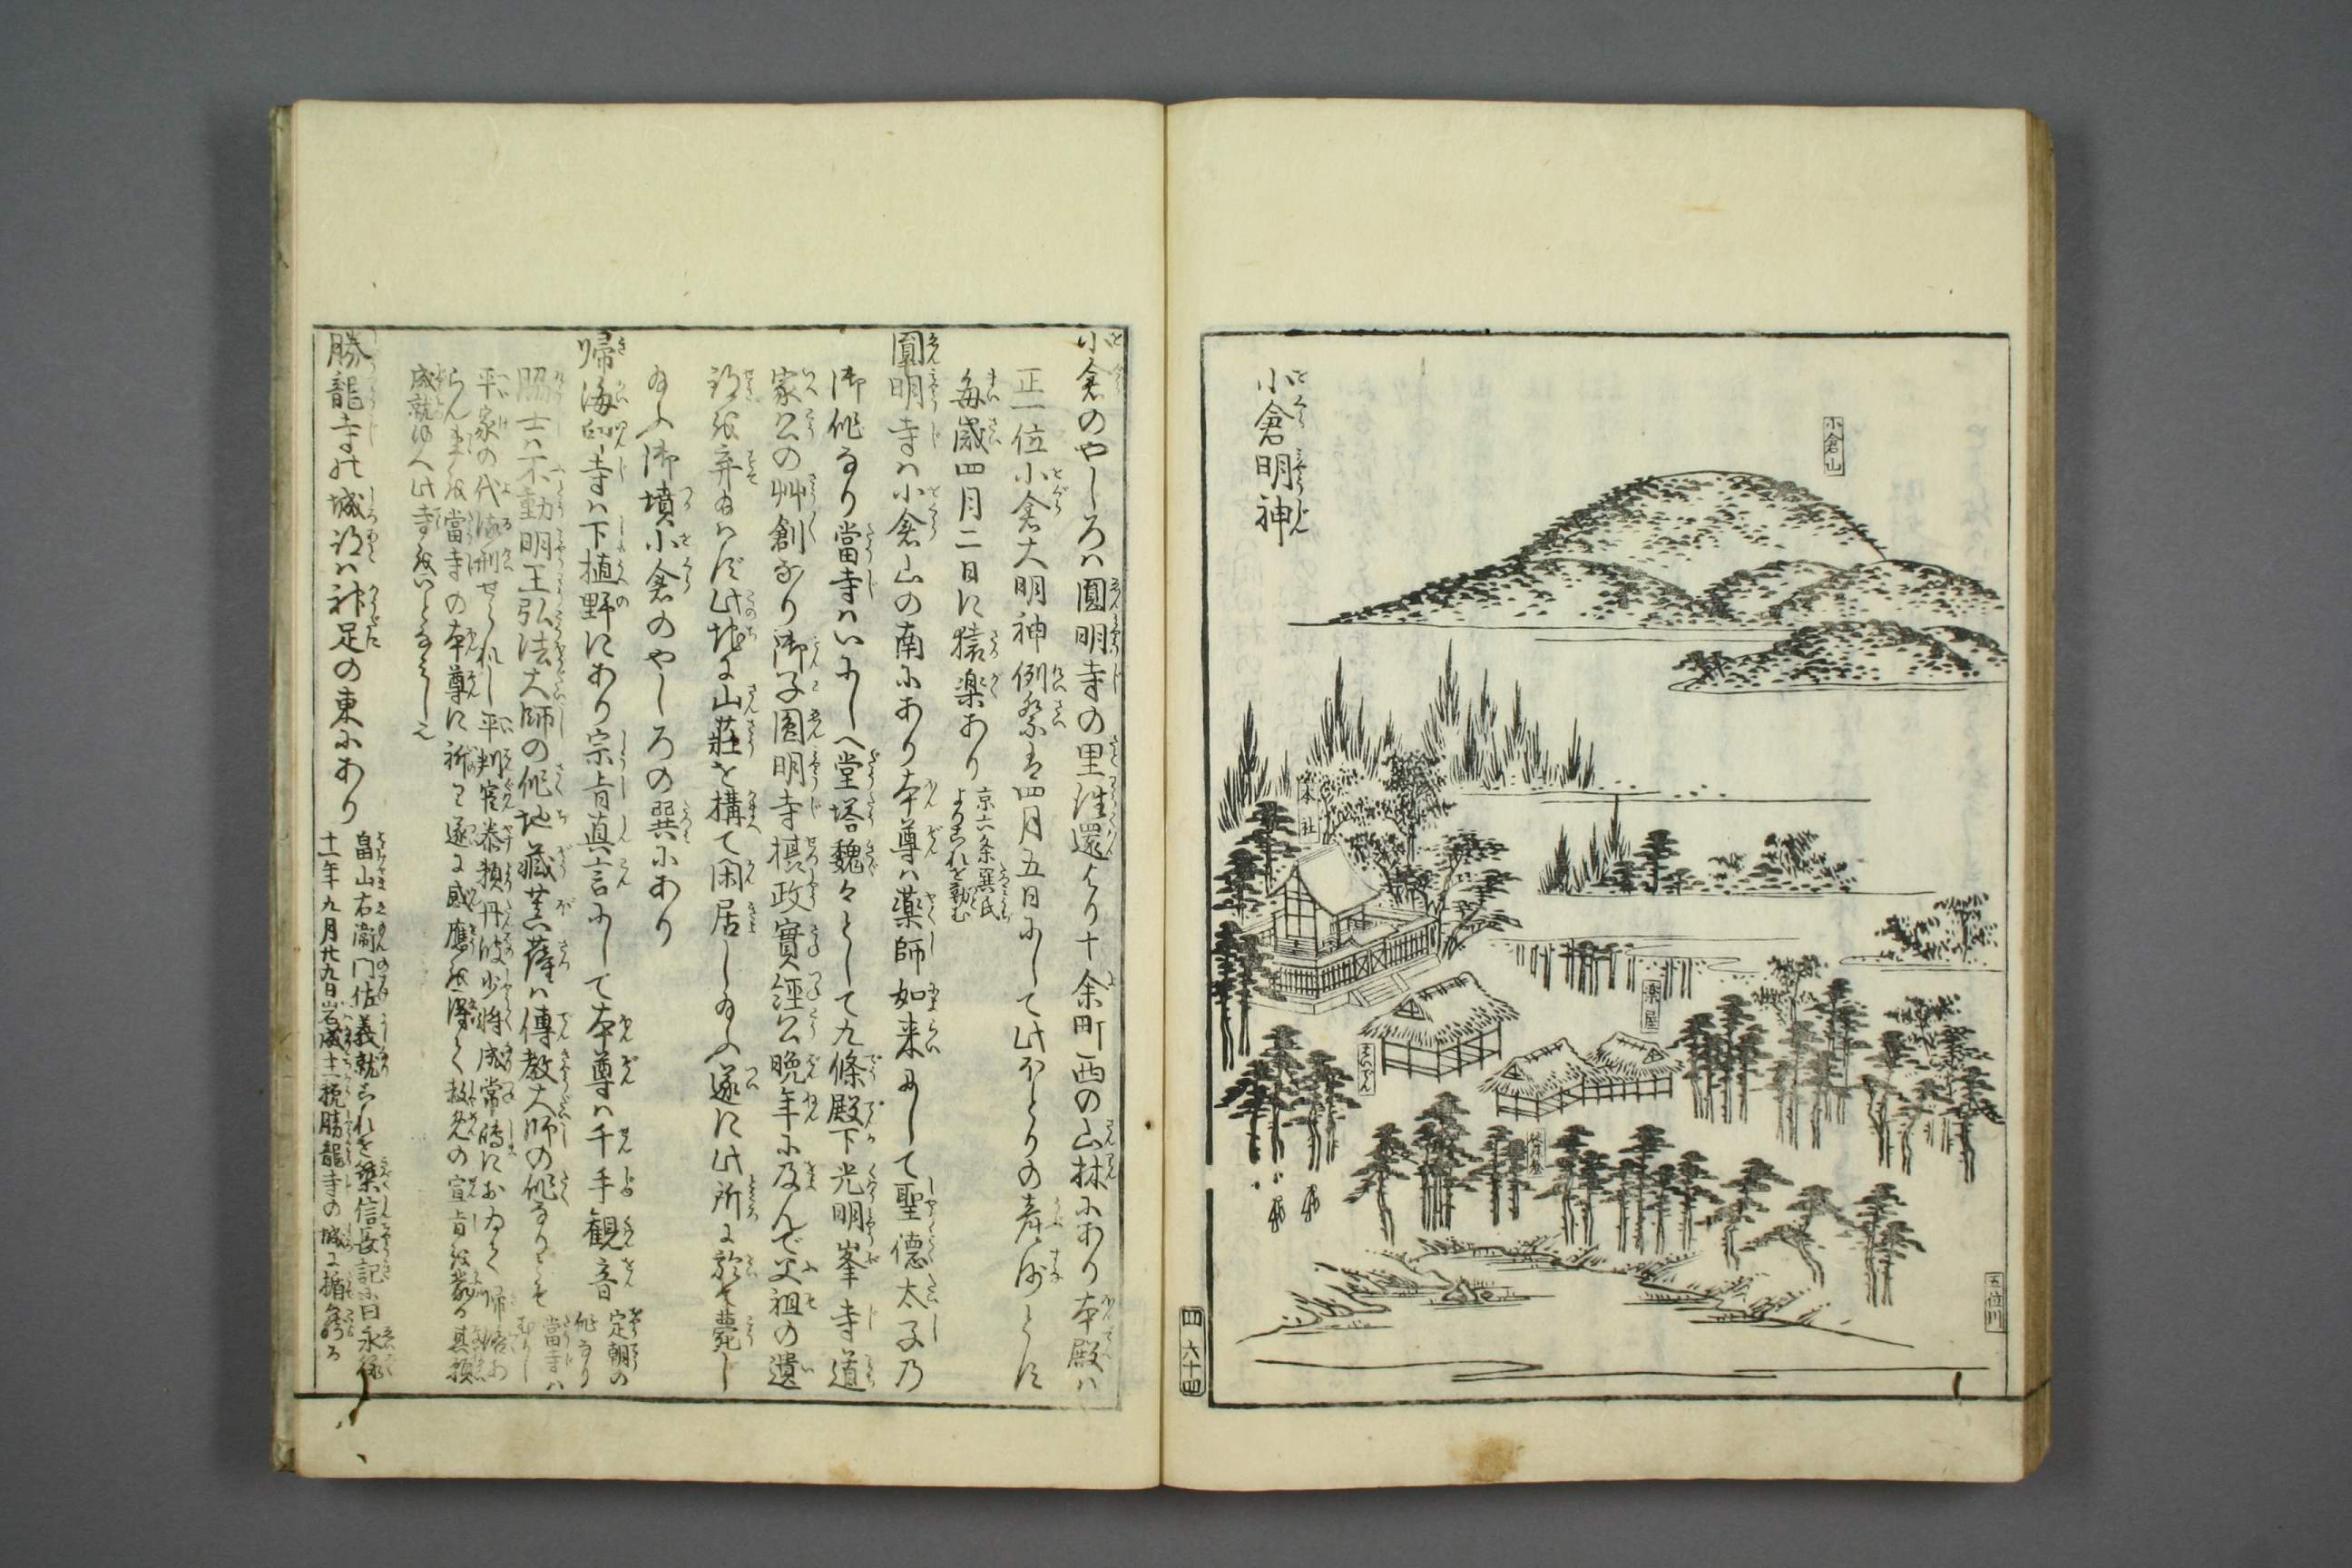 小倉明神
小倉山
本社
楽屋
はいでん
五位川
四 六十四
小倉のやしろハ圓明寺の里往還より十余町西の山林にあり本殿ハ
正一位小倉大明神例祭は四月五日にして此ほとりの産沙とす
毎歳四月二日に猿楽あり
京六条巽氏
よりこれを勤む
圓明寺ハ小倉山の南にあり本尊ハ薬師如来にして聖徳太子の
御作なり當寺ハいにしへ堂塔魏々として九條殿下光明峯寺道
家公の艸創なり御子圓明寺摂政實經公晩年に及んで父祖の遺
跡を弃給ハず此地に山荘を構て閑居し給ふ遂に此所に於て薨し
給ふ御墳小倉のやしろの巽にあり
帰海印寺ハ下植野にあり宗旨真言にして本尊ハ千手観音
定朝の
作なり
脇士ハ不動明王弘法大師の作地蔵菩薩ハ傳教大師の作なりとぞ
當寺ハ
むかし
平家の代流刑せられし平判官康頼丹波少将成常時におゐて帰洛あ
らん事を當寺の本尊に祈り遂に感應を得て赦免の宣旨を蒙る其願
成就
此寺をいとなみしとぞ
勝龍寺の城跡ハ神足の東にあり
畠山右衞門佐義就これを築信長記に曰永禄
十一年九月廿九日岩成主税勝龍寺の城に楯籠る